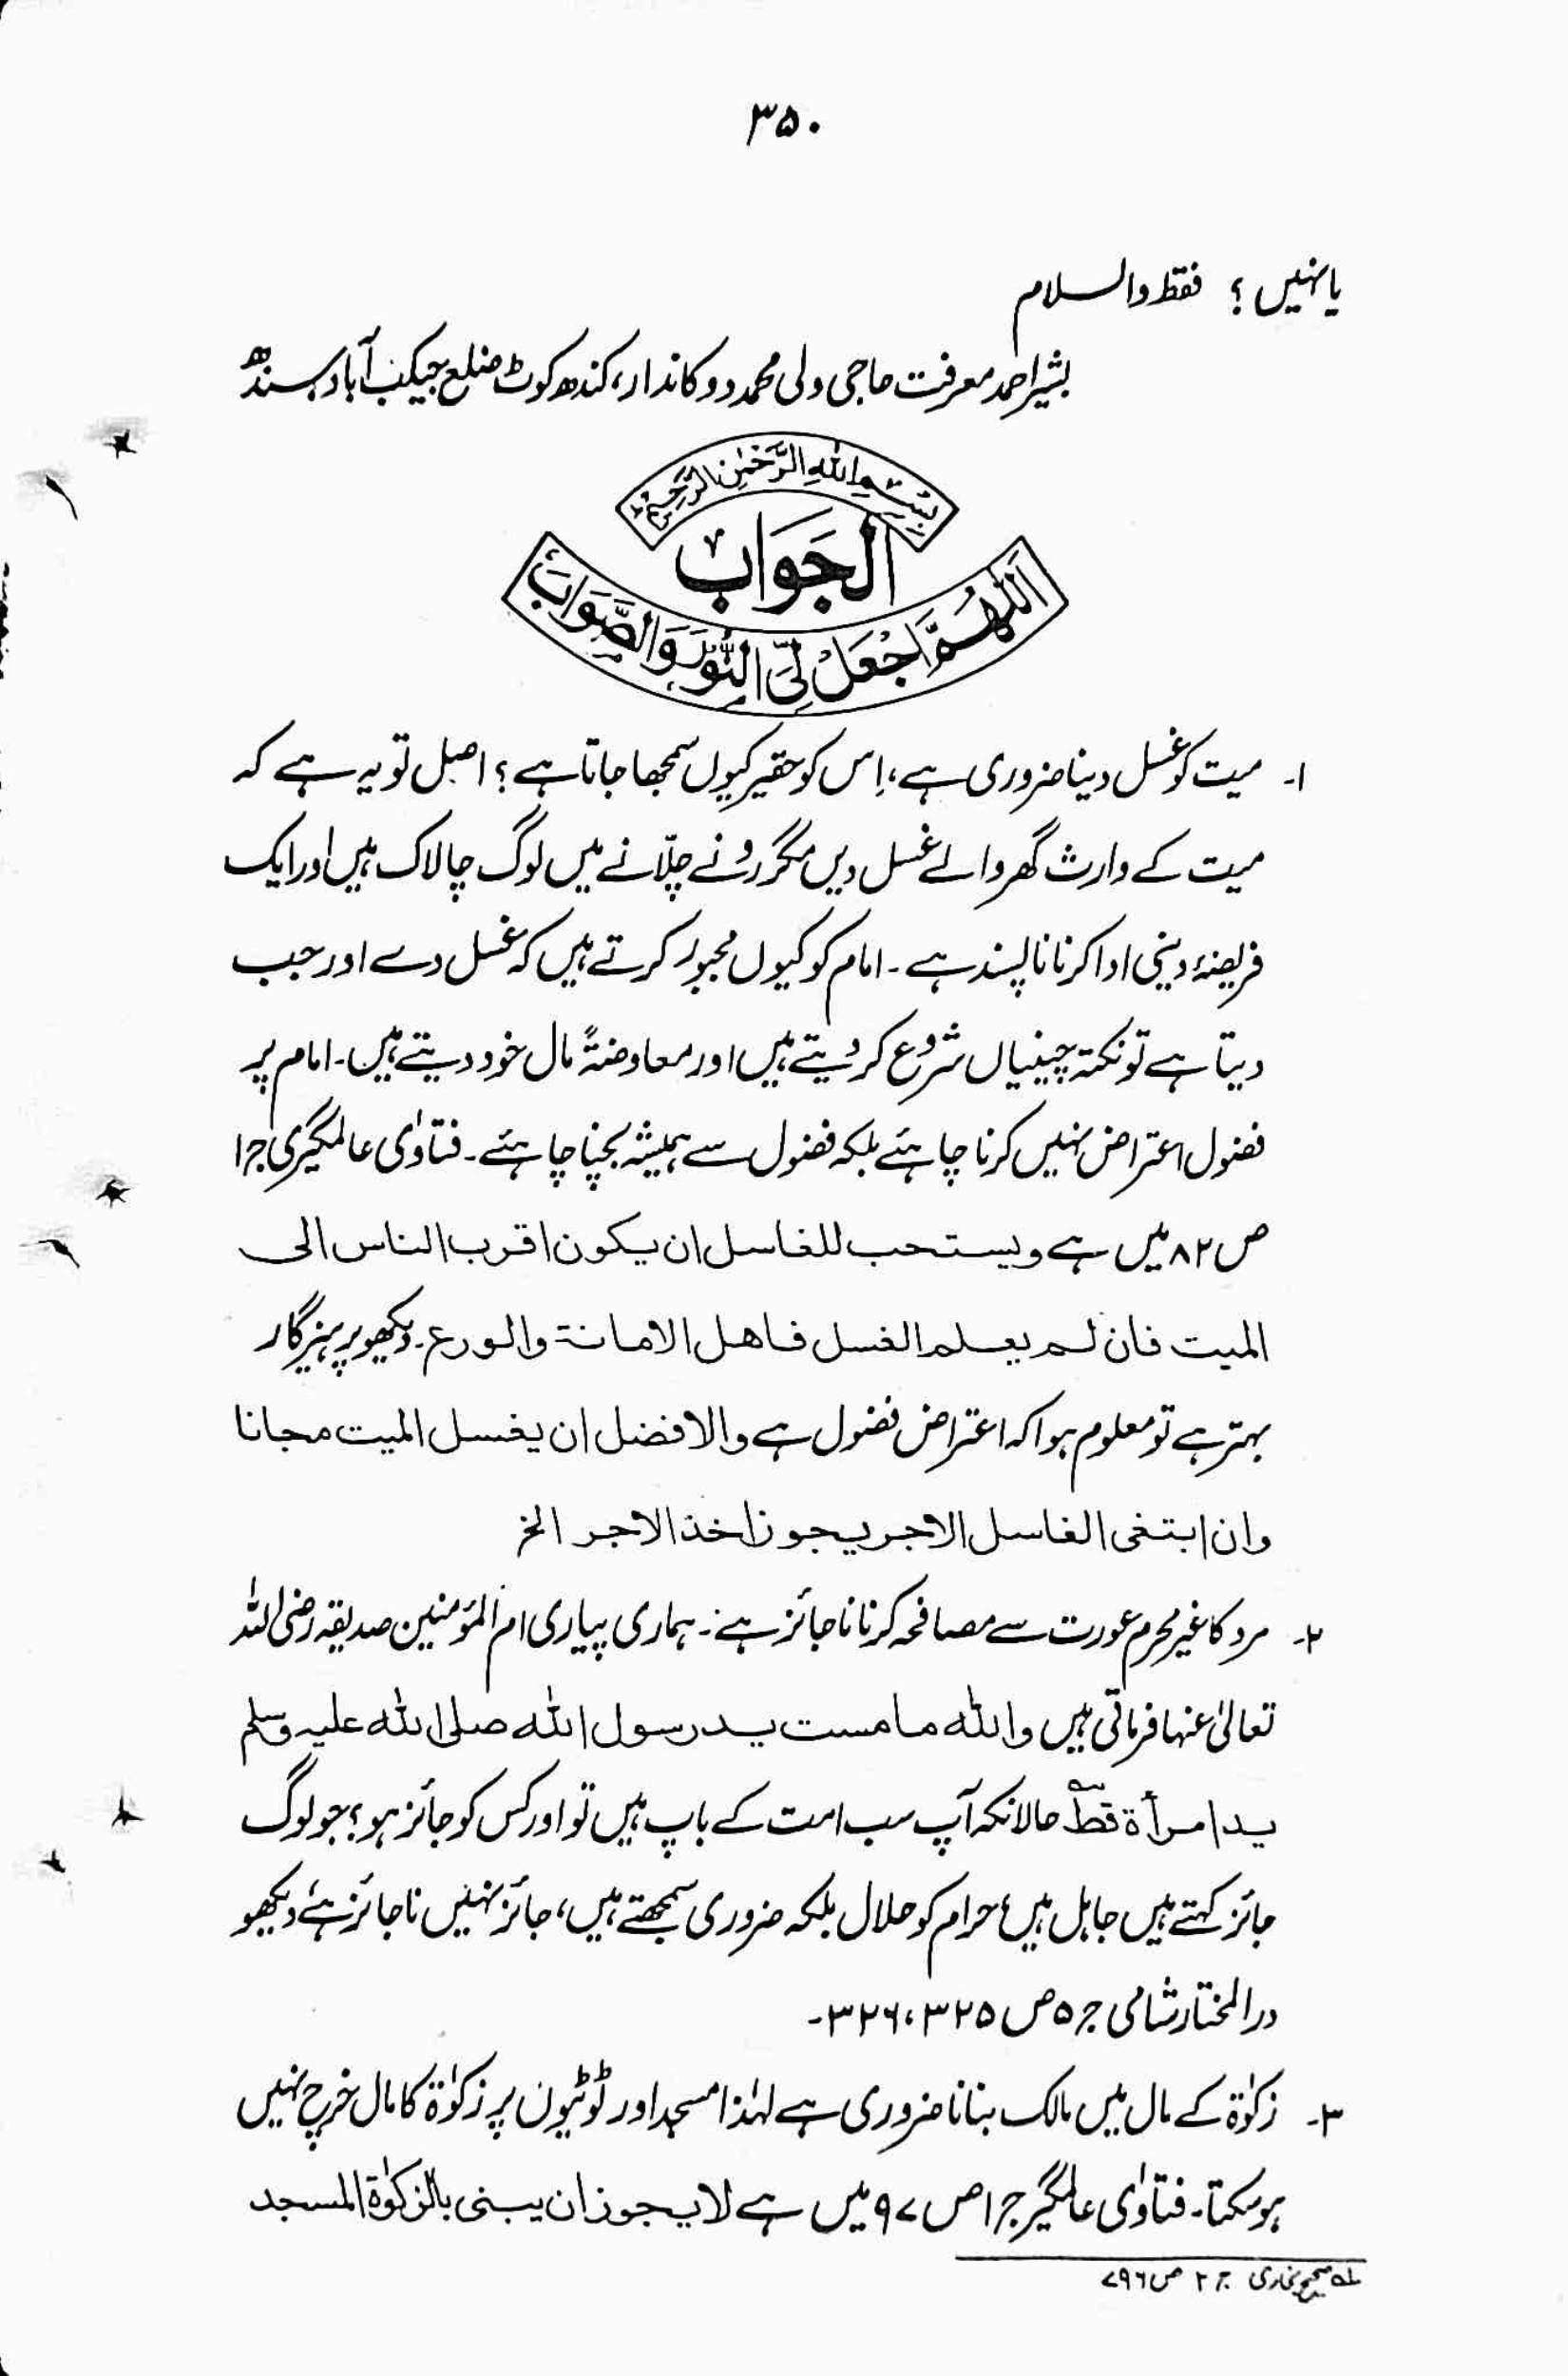 ۳۵۰
یا نہیں؟ فقط والسلام
بشیر احمد معرفت حاجی ولی محمد دوکاندار، کندھ کوٹ ضلع جیکب آباد سندھ
بِسْمِ اللهِ الرَّحْمٰنِ الرَّحِيْمِ
اَلجَوَابُ
اَللّٰهُمَّ اجْعَلْ لِّیَ النُّوْرَ وَالصَّوَابَ
۱۔ میت کو غسل دینا ضروری ہے، اِس کو حقیر کیوں سمجھا جاتا ہے؟ اصل تو یہ ہے کہ
میت کے وارث گھر والے غسل دیں مگر رونے چلّانے میں لوگ چالاک ہیں اور ایک
فریضۂ دینی ادا کرنا ناپسند ہے۔ امام کو کیوں مجبور کرتے ہیں کہ غسل دے اور جب
دیتا ہے تو نکتہ چینیاں شروع کر دیتے ہیں اور معاوضۃً مال خود دیتے ہیں۔ امام پر
فضول اعتراض نہیں کرنا چاہئے بلکہ فضول سے ہمیشہ بچنا چاہئے۔ فتاوٰی عالمگیری ج۱
ص ۸۲ میں ہے ویستحب للغاسل ان یکون اقرب الناس الی
المیت فان لم یعلم الغسل فاهل الامانة والورع۔ دیکھو پرہیزگار
بہتر ہے تو معلوم ہوا کہ اعتراض فضول ہے والافضل ان یغسل المیت مجانا
وان ابتغی الغاسل الاجر یجوز اخذ الاجر الخ
۲۔ مرد کا غیر محرم عورت سے مصافحہ کرنا ناجائز ہے۔ ہماری پیاری ام المؤمنین صدیقہ رضی اللہ
تعالیٰ عنہا فرماتی ہیں والله ما مست ید رسول الله صلی الله علیہ وسلم
ید امرأة قطّ ؎ حالانکہ آپ سب امت کے باپ ہیں تو اور کس کو جائز ہو؟ جو لوگ
جائز کہتے ہیں جاہل ہیں، حرام کو حلال بلکہ ضروری سمجھتے ہیں، جائز نہیں ناجائز ہے، دیکھو
درالمختار شامی ج ۵ ص ۳۲۵، ۳۲۶۔
۳۔ زکوٰۃ کے مال میں مالک بنانا ضروری ہے لہٰذا مسجد اور ٹوٹیوں پر زکوٰۃ کا مال خرچ نہیں
ہو سکتا۔ فتاوٰی عالمگیر ج ۱ ص ۹۷ میں ہے لا یجوز ان یبنی بالزکوٰة المسجد
لہ صحیح بخاری ج ۲ ص ۷۹۶